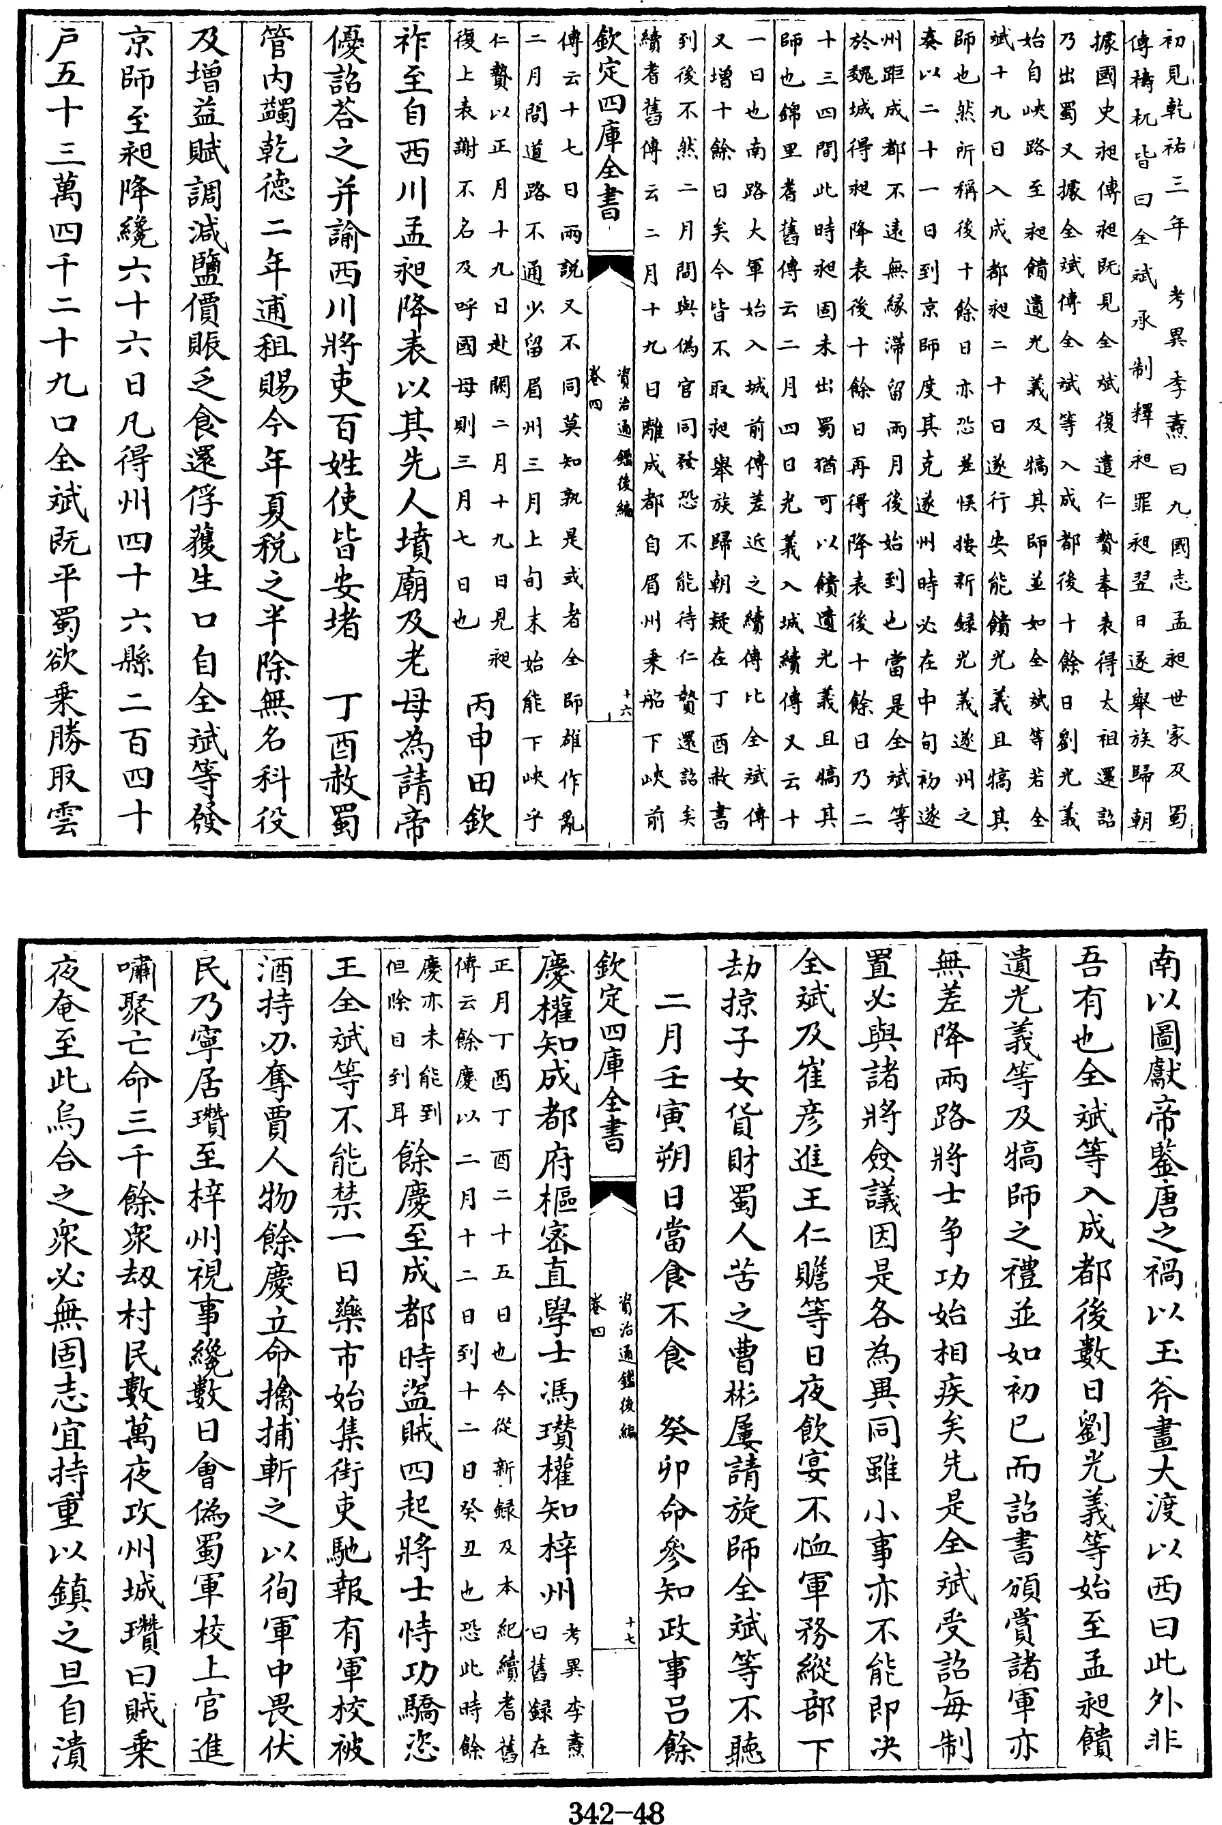 初見乾祐三年　考異李燾曰九國志孟昶世家及蜀
傳檮杌皆曰全斌承制釋昶罪昶翌日遂舉族歸朝
據國史昶傳昶既見全斌復遣仁贄奉表得太祖還詔
乃出蜀又據全斌傳全斌等入成都後十餘日劉光義
始自峽路至昶饋遺光義及犒其師並如全斌等若全
斌十九日入成都昶二十日遂行安能饋光義且犒其
師也然所稱後十餘日亦恐並悞按新録光義遂州之
奏以二十一日到京師度其克遂州時必在中旬初遂
州距成都不遠無縁滯留兩月後始到也當是全斌等
於魏城得昶降表後十餘日再得降表後十餘日乃二
十三四間此時昶固未出蜀猶可以饋遺光義且犒其
師也錦里耆舊傳云二月四日光義入城續傳又云十
一日也南路大軍始入城前傳差近之續傳比全斌傳
又增十餘日矣今皆不取昶舉族歸朝疑在丁酉赦書
到後不然二月間與偽官同發恐不能待仁贄還詔矣
續耆舊傳云二月十九日離成都自眉州乘船下峽前
欽定四庫全書
資治通鑑後編
卷四
十六
傳云十七日兩說又不同莫知孰是或者全師雄作亂
二月間道路不通少留眉州三月上旬末始能下峽乎
仁贄以正月十九日赴闕二月十九日見昶
復上表謝不名及呼國母則三月七日也
丙申田欽
祚至自西川孟昶降表以其先人墳廟及老母為請帝
優詔荅之并諭西川將吏百姓使皆安堵　丁酉赦蜀
管內蠲乾德二年逋租賜今年夏税之半除無名科役
及增益賦調減鹽價賑乏食還俘獲生口自全斌等發
京師至昶降纔六十六日凡得州四十六縣二百四十
戸五十三萬四千二十九口全斌既平蜀欲乘勝取雲
南以圖獻帝鑒唐之禍以玉斧畫大渡以西曰此外非
吾有也全斌等入成都後數日劉光義等始至孟昶饋
遺光義等及犒師之禮並如初已而詔書頒賞諸軍亦
無差降兩路將士争功始相疾矣先是全斌受詔每制
置必與諸將僉議因是各為異同雖小事亦不能即决
全斌及崔彦進王仁贍等日夜飲宴不恤軍務縱部下
劫掠子女貨財蜀人苦之曹彬屢請旋師全斌等不聽
二月壬寅朔日當食不食　癸卯命參知政事吕餘
欽定四庫全書
資治通鑑後編
卷四
十七
慶權知成都府樞密直學士馮瓚權知梓州
考異李燾
曰舊録在
正月丁酉丁酉二十五日也今從新録及本紀續耆舊
傳云餘慶以二月十二日到十二日癸丑也恐此時餘
慶亦未能到
但除日到耳
餘慶至成都時盜賊四起將士恃功驕恣
王全斌等不能禁一日藥市始集街吏馳報有軍校被
酒持刃奪賈人物餘慶立命擒捕斬之以徇軍中畏伏
民乃寧居瓚至梓州視事纔數日會偽蜀軍校上官進
嘯聚亡命三千餘衆刼村民數萬夜攻州城瓚曰賊乘
夜奄至此烏合之衆必無固志宜持重以鎮之旦自潰
342-48